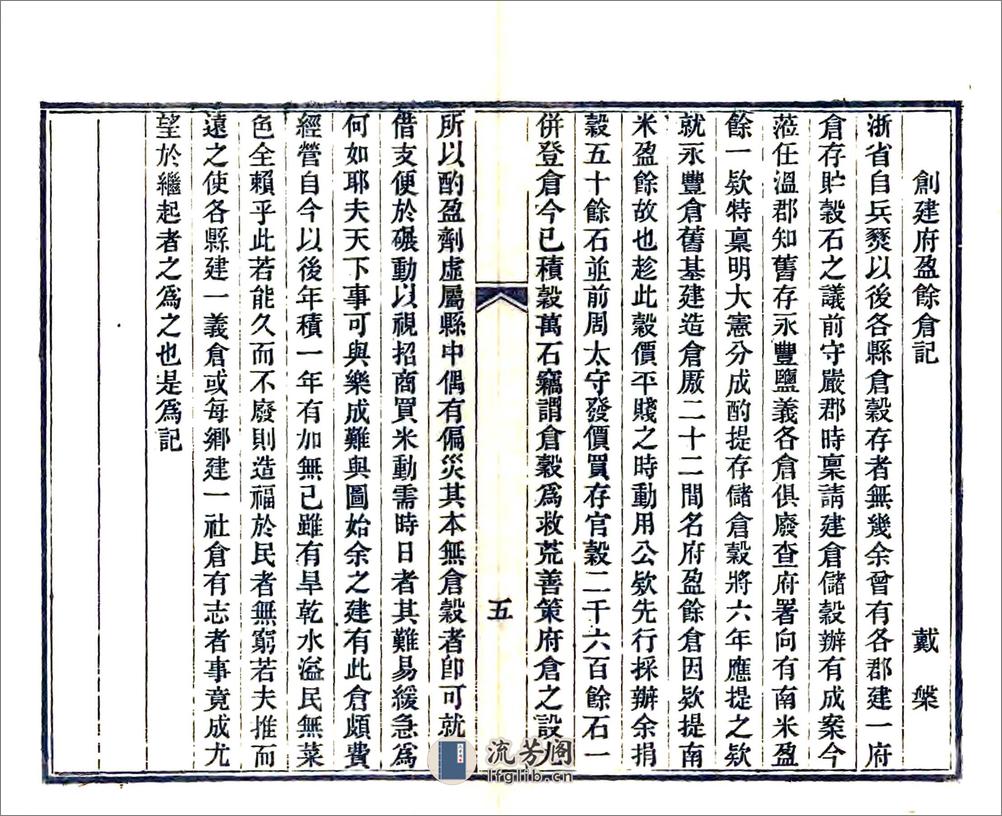 創建府盈餘倉記　戴槃
浙省自兵燹以後各縣倉穀存者無幾余曾有各郡建一府
倉存貯穀石之議前守嚴郡時稟請建倉儲穀辦有成案今
蒞任溫郡知舊存永豐鹽義各倉俱廢查府署向有南米盈
餘一欵特稟明大憲分成酌提存儲倉穀將六年應提之欵
就永豐倉舊基建造倉厫二十二間名府盈餘倉因欵提南
米盈餘故也趁此穀價平賤之時動用公欵先行採辦余捐
穀五十餘石並前周太守發價買存官穀二千六百餘石一
併登倉今已積穀萬石竊謂倉穀爲救荒善策府倉之設
五
所以酌盈劑虛屬縣中偶有偏災其本無倉穀者卽可就
借支便於碾動以視招商買米動需時日者其難易緩急爲
何如耶夫天下事可與樂成難與圖始余之建有此倉頗費
經營自今以後年積一年有加無已雖有旱乾水溢民無菜
色全賴乎此若能久而不廢則造福於民者無窮若夫推而
遠之使各縣建一義倉或每鄉建一社倉有志者事竟成尤
望於繼起者之爲之也是爲記
流芳阁
lfglib.cn